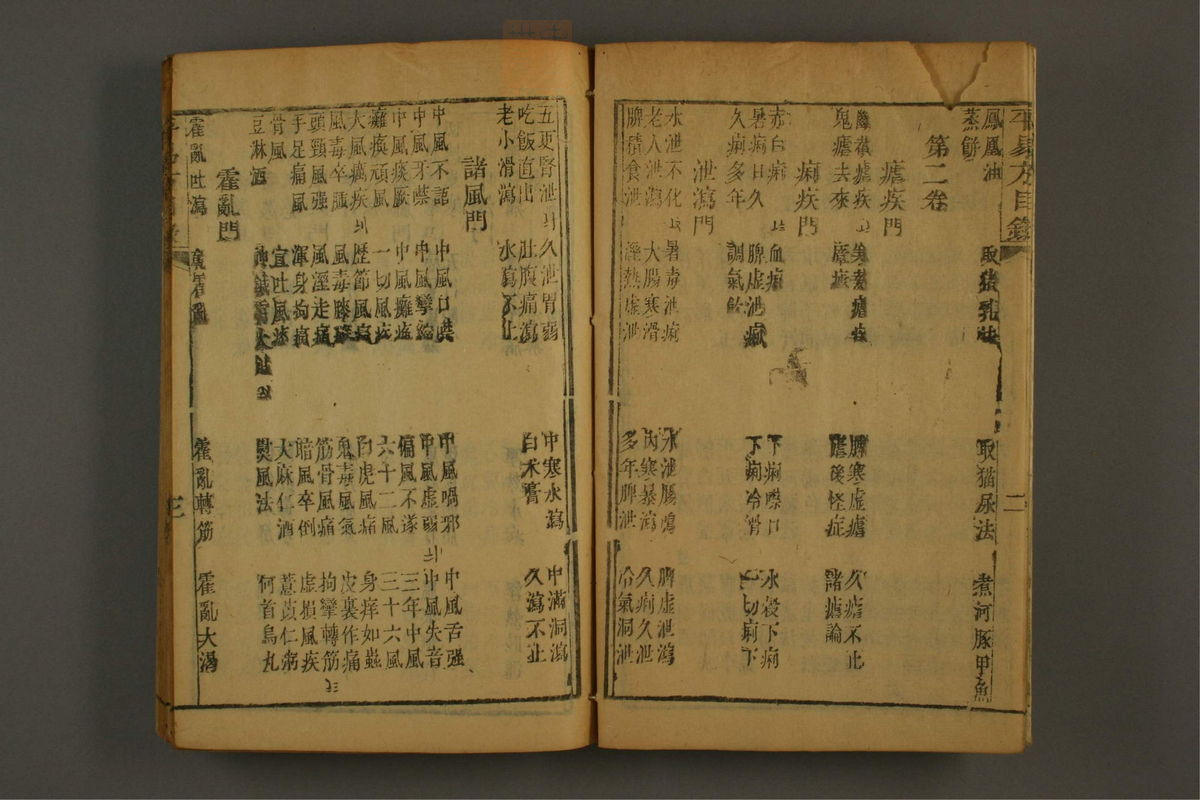 平易方目錄
二
鳳凰油 取猪乳法 取猫尿法 煮河豚甲魚
蒸餅
第二卷
瘧疾門
瘧疾 脾寒虛瘧 久瘧不止
鬼瘧去來 瘧後怪症 諸瘧論
痢疾門
赤白痢 血痢 下痢噤口 水穀下痢
暑痢日久 脾虛泄痢 下痢冷滑 一切痢下
久痢多年 調氣飲
泄瀉門
水泄不化 暑毒泄痢 脾虛泄瀉
老人泄瀉 大腸寒滑 內寒暴瀉 久痢久泄
脾積食泄 溼熱虛泄 多年脾泄 冷氣洞泄
五更腎泄 久泄胃弱 中寒水瀉 中滿洞瀉
吃飯直出 肚腹痛瀉 白朮膏 久瀉不止
老小滑瀉 水瀉不止
諸風門
中風不語 中風口噤 中風喎邪 中風舌強
中風牙噤 中風攣縮 中風虛弱 中風失音
中風痰厥 中風癱瘓 偏風不遂 三年中風
癱瘓頑風 一切風疾 六十二風 三十六風
大風癘疾 歷節風痛 白虎風痛 身痒如蟲
風毒卒腫 風毒膝痛 鬼毒風氣 皮裏作痛
頭頸風強 風溼走痛 筋骨風痛 拘攣轉筋
手足痛風 渾身拘痛 暗風卒倒 虛損風疾
骨風 宜吐風痰 大麻仁酒 薏苡仁粥
豆淋酒 熨風法 何首烏丸
霍亂門
霍亂吐瀉 霍亂轉筋 霍亂大渴
三